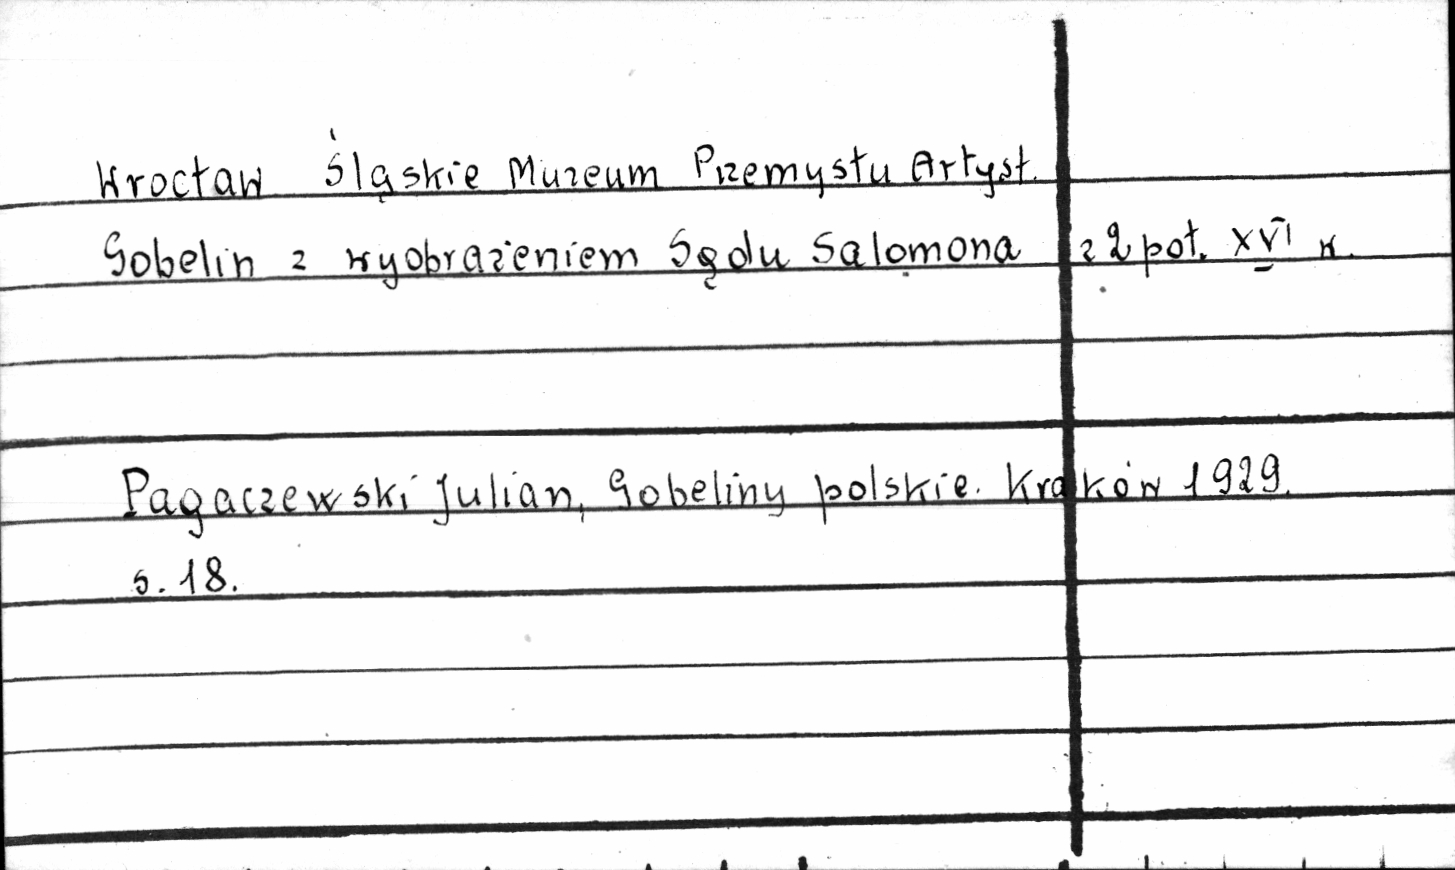 Wrocław Śląskie Muzeum Przemysłu Artyst.
Gobelin z wyobrażeniem Sądu Salomona z 2 poł. XVI w.
Pagaczewski Julian, Gobeliny polskie. Kraków 1929.
s. 18.